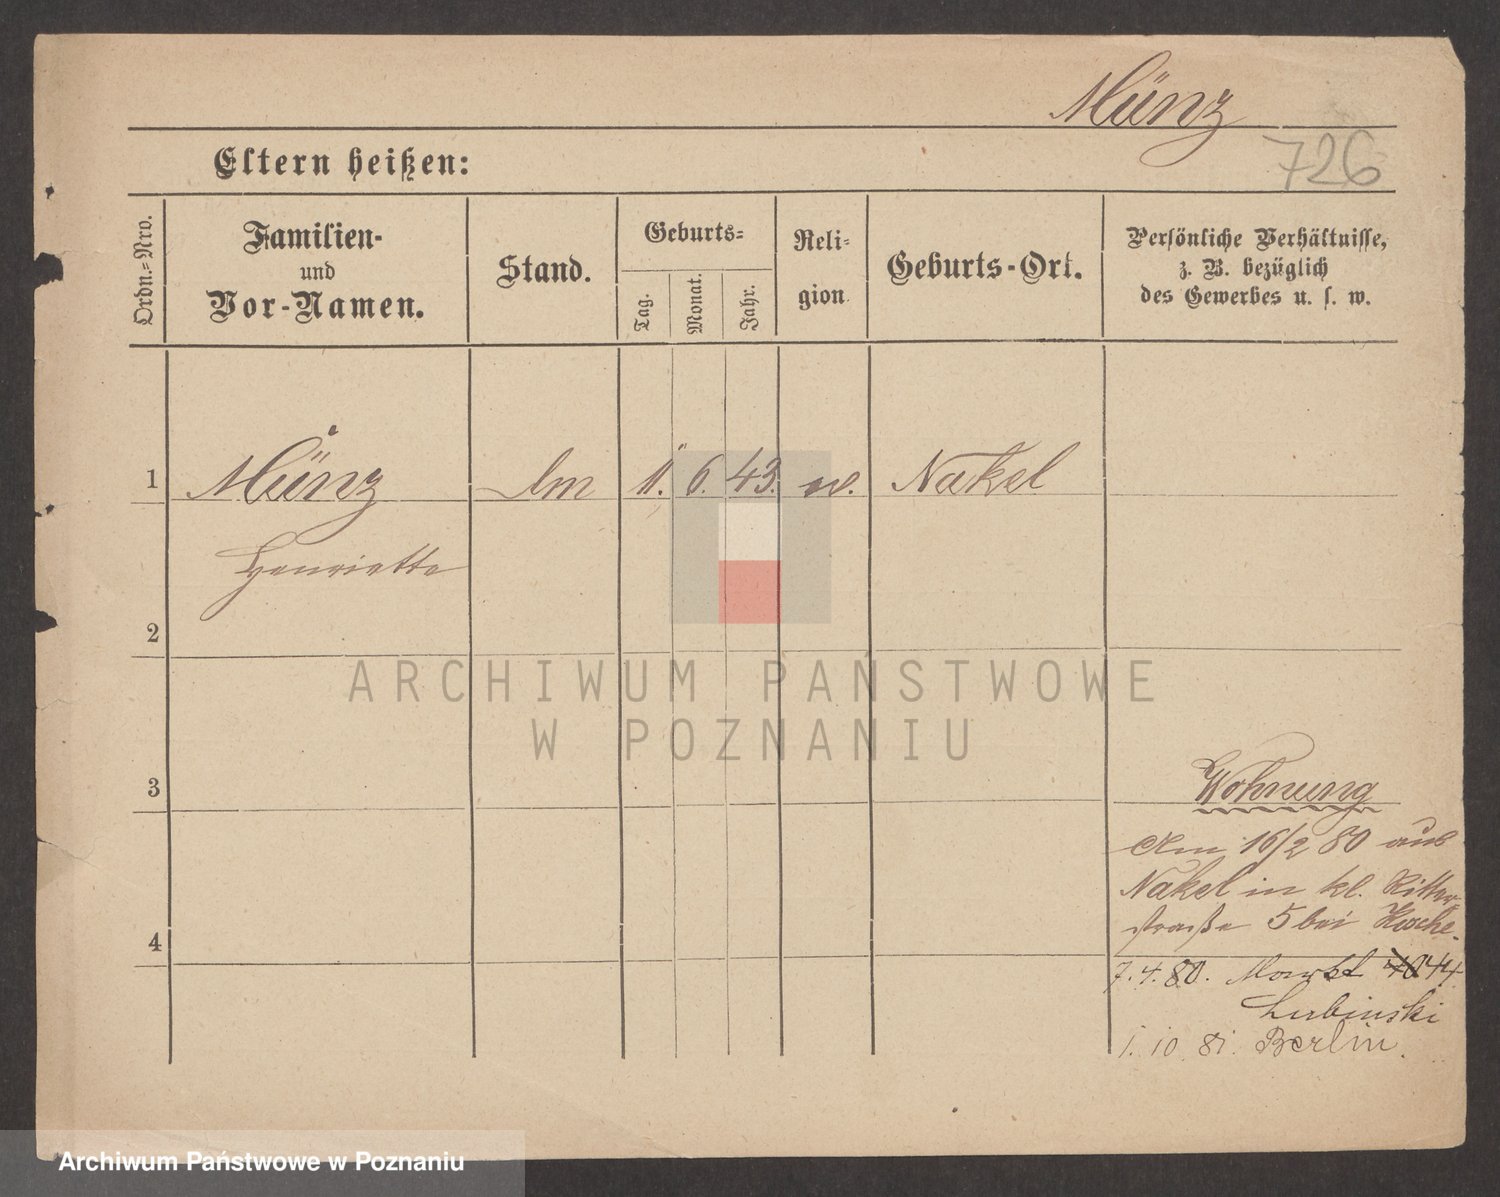 Münz
726
Eltern heißen:
Ordn.-Nro.
Familien-
und
Vor-Namen.
Stand.
Geburts-
Tag.
Monat.
Jahr.
Reli-
gion
Geburts-Ort.
Persönliche Verhältnisse,
z. B. bezüglich
des Gewerbes u. s. w.
1 Münz 11. 6. 43. Nakel
Henriette
2
ARCHIWUM PAŃSTWOWE
W POZNANIU
3
Wohnung
Am 16/2 80 aus
Nakel in kl. Ritter-
straße 5 bei
4
7.4.80. Markt 44
Lubinski
1. 10. 81. Berlin.
Archiwum Państwowe w Poznaniu